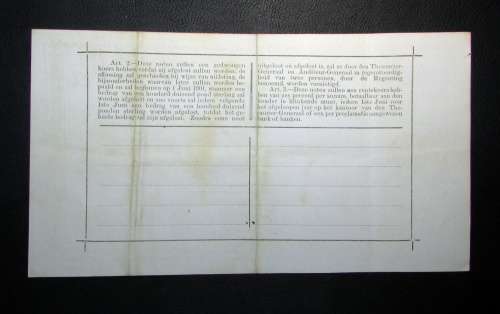 Art. 2.—Deze noten zullen een gedwongen
koers hebben totdat zij afgelost zullen worden, de
aflossing zal geschieden bij wijze van uitloting, de
bijzonderheden waarvan later zullen worden be-
paald en zal beginnen op 1 Juni 1901, wanneer een
bedrag van een honderd duizend pond sterling zal
worden afgelost en zoo voorts zal ieder volgende
1ste Juni een bedrag van een honderd duizend
ponden sterling worden afgelost, totdat het ge-
heele bedrag zal zijn afgelost. Zoodra eene noot
uitgeloot en afgelost is, zal ze door den Thesaurier-
Generaal en Auditeur-Generaal in tegenwoordig-
heid van twee personen, door de Regeering
benoemd, worden vernietigd.
Art. 3.—Deze noten zullen een rentekoers heb-
ben van zes percent per annum, betaalbaar aan den
houder in klinkende munt, iedere 1ste Juni over
het afgeloopen jaar op het kantoor van den The-
saurier-Generaal of een per proclamatie aangewezen
bank of banken.